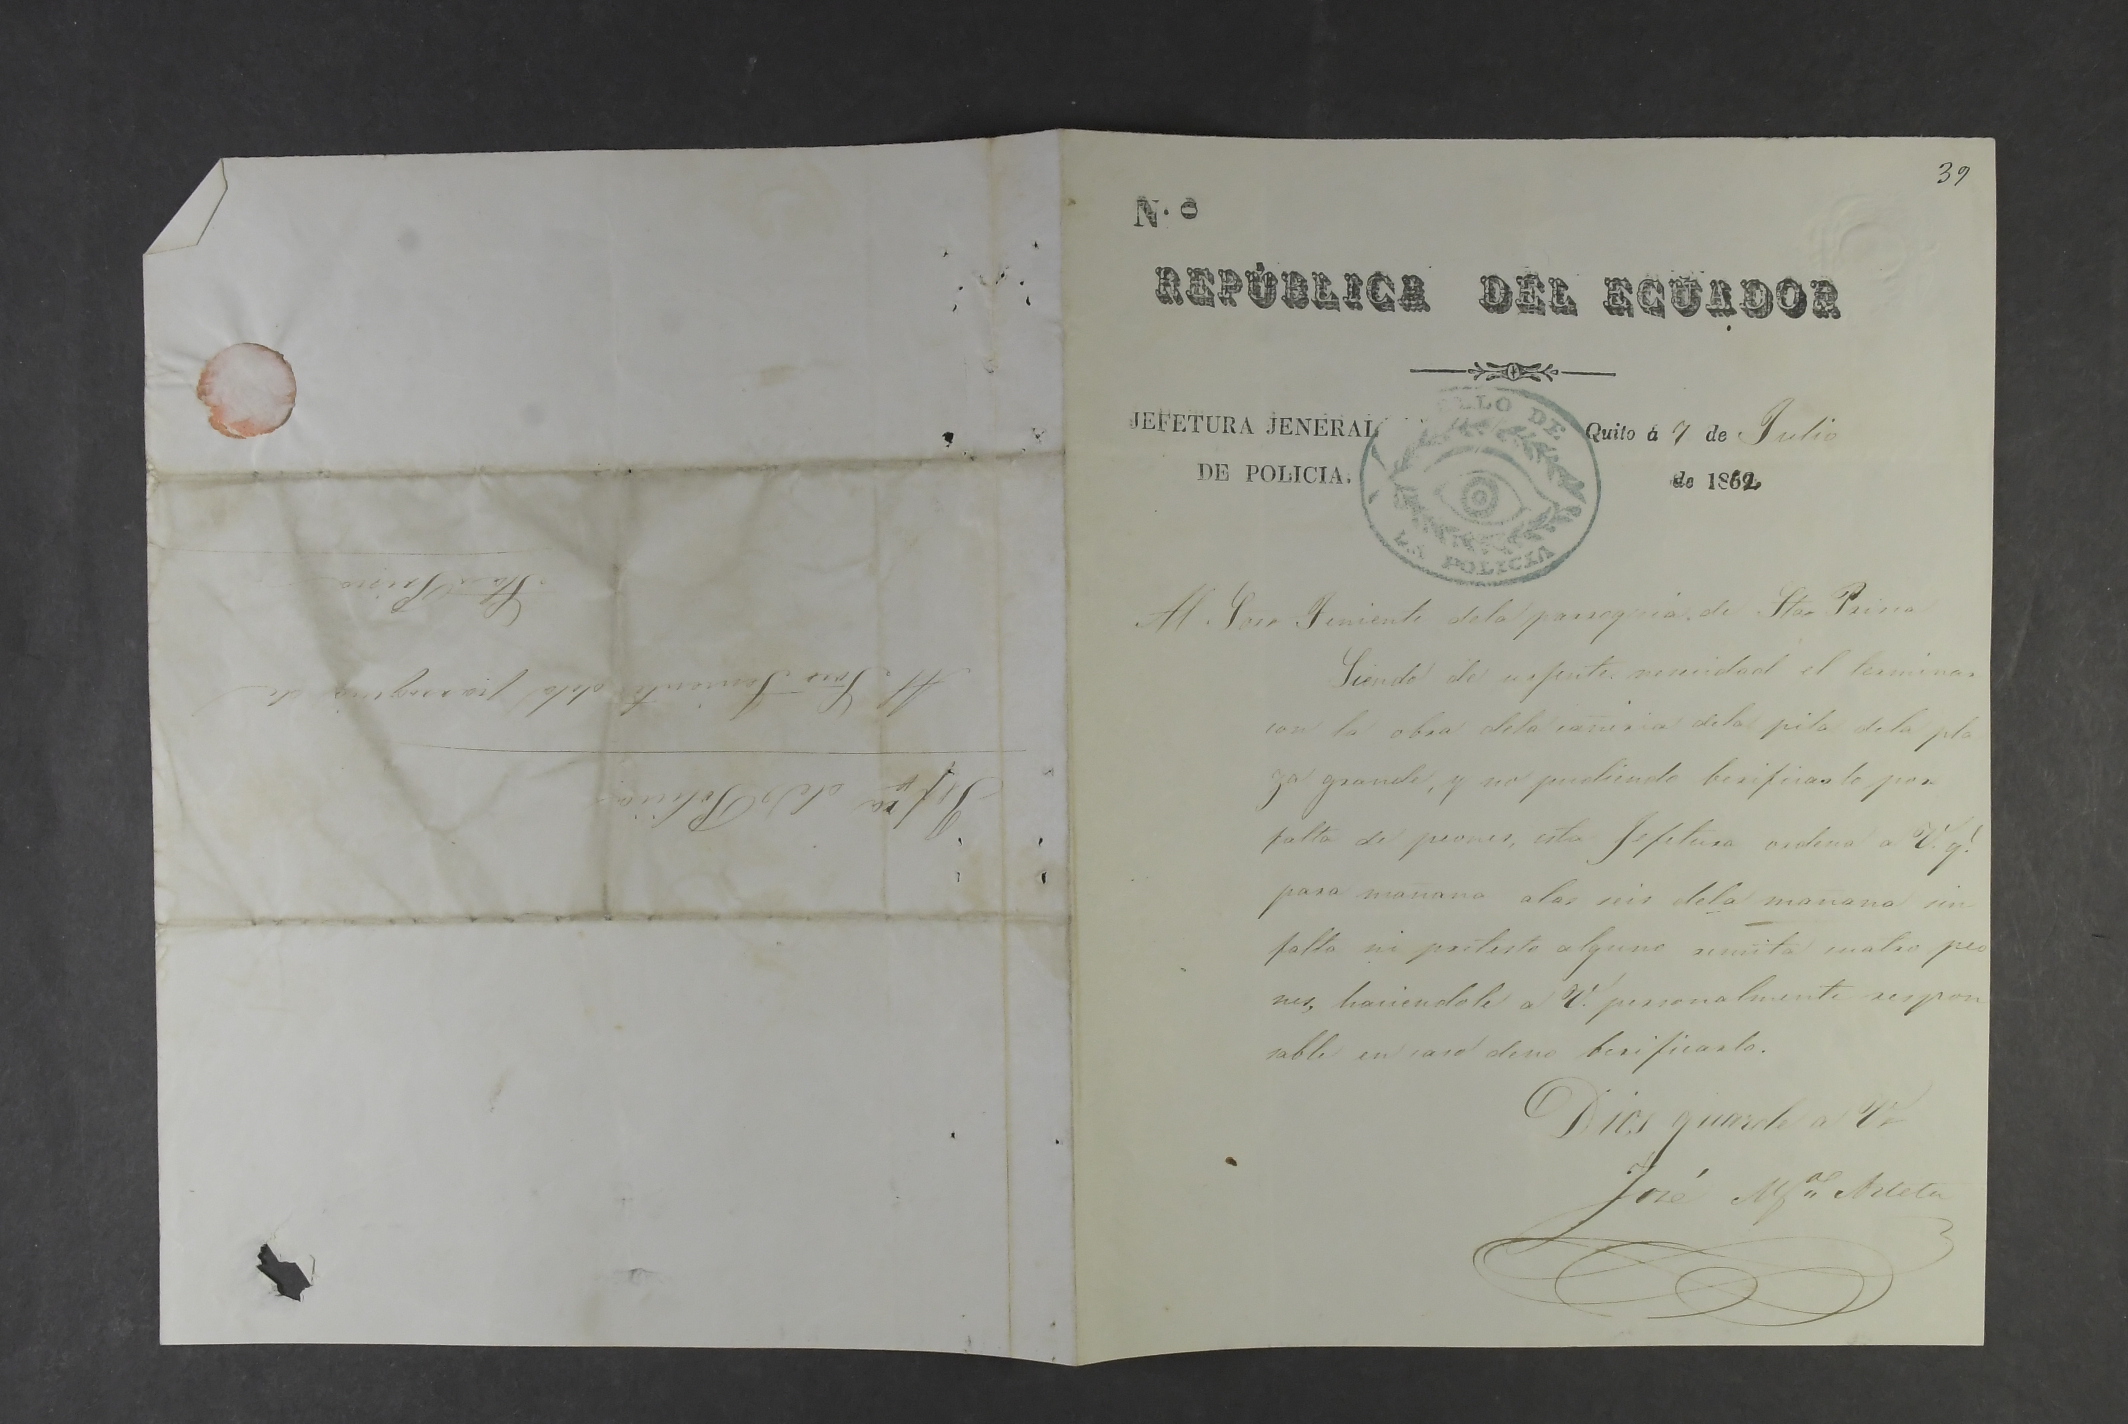 39
N.º
REPÚBLICA DEL ECUADOR
JEFETURA JENERAL
DE POLICIA.
SELLO DE
LA POLICIA
Quito á 7 de Julio
de 1862
Al Sor Teniente dela parroquia de Sta Prisca
Siendo de urjente necesidad el terminar
con la obra dela cañeria dela pila dela pla
za grande, y no pudiendo berificarlo por
falta de peones, esta Jefetura ordena a V. q.e
para mañana alas seis dela mañana sin
falta ni pretesto alguno remita cuatro peo
nes, haciendole a V. personalmente respon
sable en caso deno berificarlo.
Dios guarde a V.
José M.l Arteta
Jef.ra de Policia
Al Sor Teniente dela parroquia de
Sta Prisca